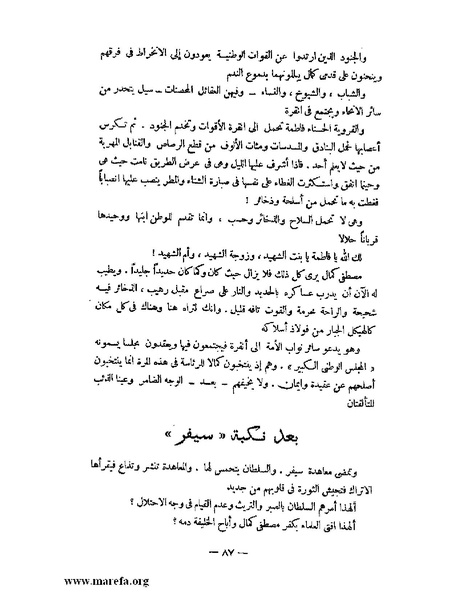 والجنود الذين ارتدوا عن القوات الوطنية يعودون إلى الانخراط فى فرقهم
وينحنون على قدمى كمال يبللونهما بدموع الندم
والشباب ، والشيوخ ، والنساء – وفيهن العقائل المحصنات – سيل يتحدر من
سائر الانحاء ويجتمع فى انقرة
والقروية الحسناء فاطمة تحمل الى انقرة الأقوات وتخدم الجنود . ثم تكرس
أعصابها لحمل البنادق والمسدسات ومئات الألوف من قطع الرصاص والقنابل المهربة
من حيث لا يعلم أحد . فاذا أشرف عليها الليل وهى فى عرض الطريق نامت حيث هى
وحيثما اتفق واستكثرت الغطاء على نفسها فى صبارة الشتاء والمطر ينصب عليها انصباباً
فغطت به ما تحمل من أسلحة وذخائر !
وهى لا تحمل السلاح والذخائر وحسب ، وانما تقدم للوطن ابنها ووحيدها
قرباناً حلالا
لك الله يا فاطمة يا بنت الشهيد ، وزوجة الشهيد ، وأم الشهيد !
مصطفى كمال يرى كل ذلك فلا يزال حيث كان وكما كان حديداً جليداً . ويطيب
له الآن أن يدرب عساكره بالحديد والنار على صراع مقبل رهيب ، الذخائر فيه
شحيحة والراحة محرمة والقوت تافه قليل . وانك لتراه هنا وهناك فى كل مكان
كالهيكل الجبار من فولاذ أسلاكه
وهو يدعو سائر نواب الأمة الى أنقرة فيجتمعون فيها ويعقدون ، مجلسا يسمونه
« المجلس الوطنى الكبير » . وهم إذ ينتخبون كمالا للرئاسة فى هذه المرة انما ينتخبون
أصلحهم عن عقيدة وايمان . ولا يخيفهم – بعد – الوجه الضامر وعينا الذئب
المتألقتان
بعد نكبة « سيفر »
وتمضى معاهدة سيفر . والسلطان يتحمس لها . والمعاهدة تنشر وتذاع فيقرأها
الاتراك فتجيش الثورة فى قلوبهم من جديد
ألهذا أمرهم السلطان بالصبر والتريث وعدم القيام فى وجه الاحتلال ؟
ألهذا افتى العلماء بكفر مصطفى كمال وأباح الخليفة دمه ؟
– ٨٧ –
www.marefa.org